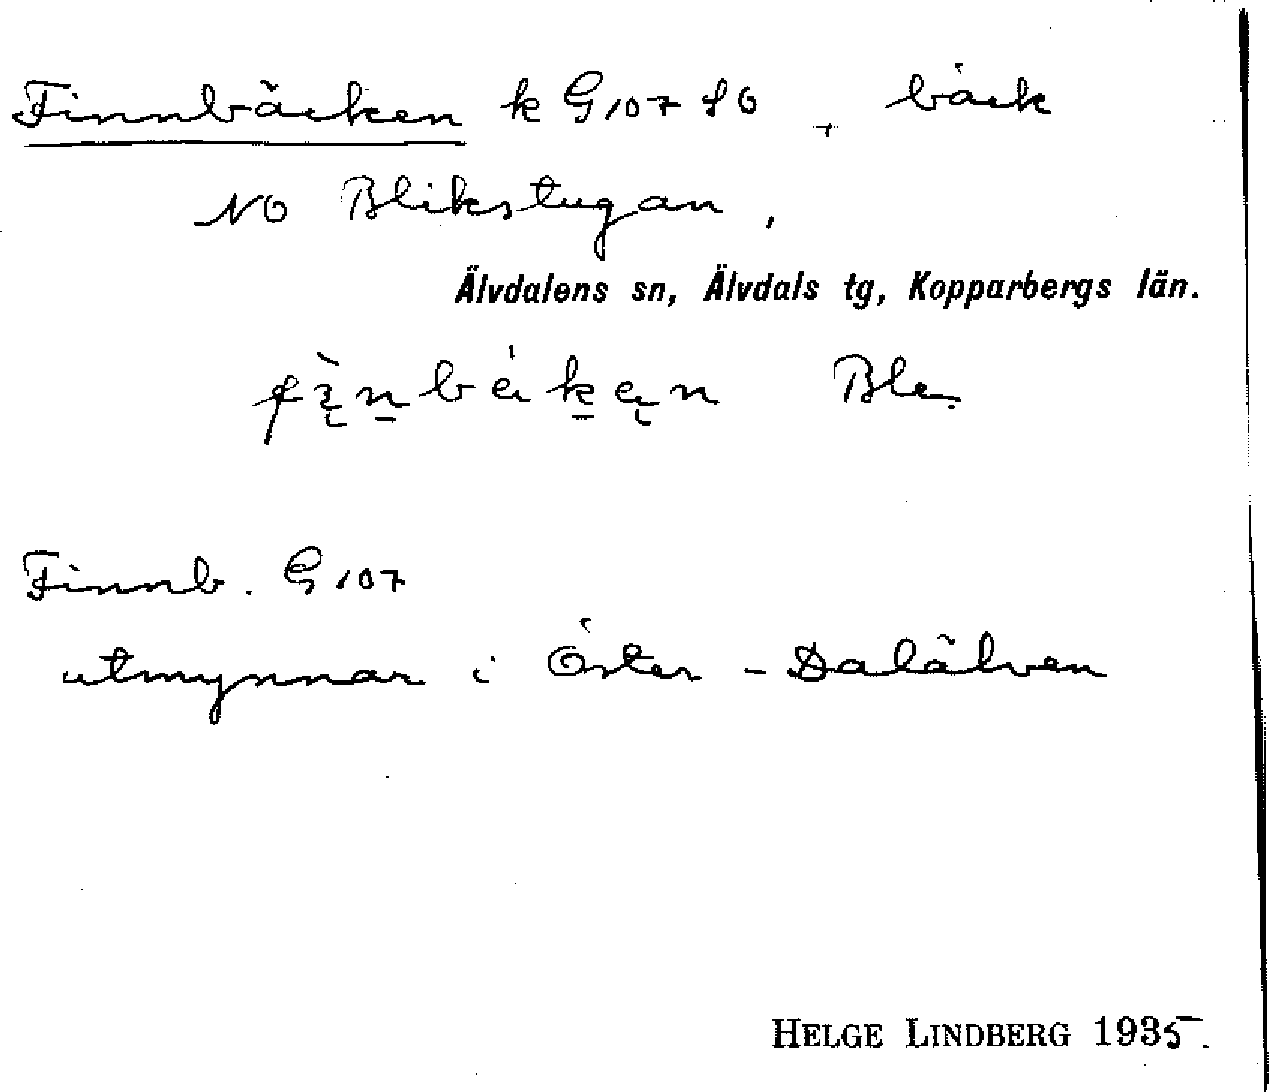 Finnbäcken k G 107 SO, bäck
NO Blikstugan,
Älvdalens sn, Älvdals tg, Kopparbergs län.
Finnb. G 107
utmynnar i Öster-Dalälven
HELGE LINDBERG 1935.